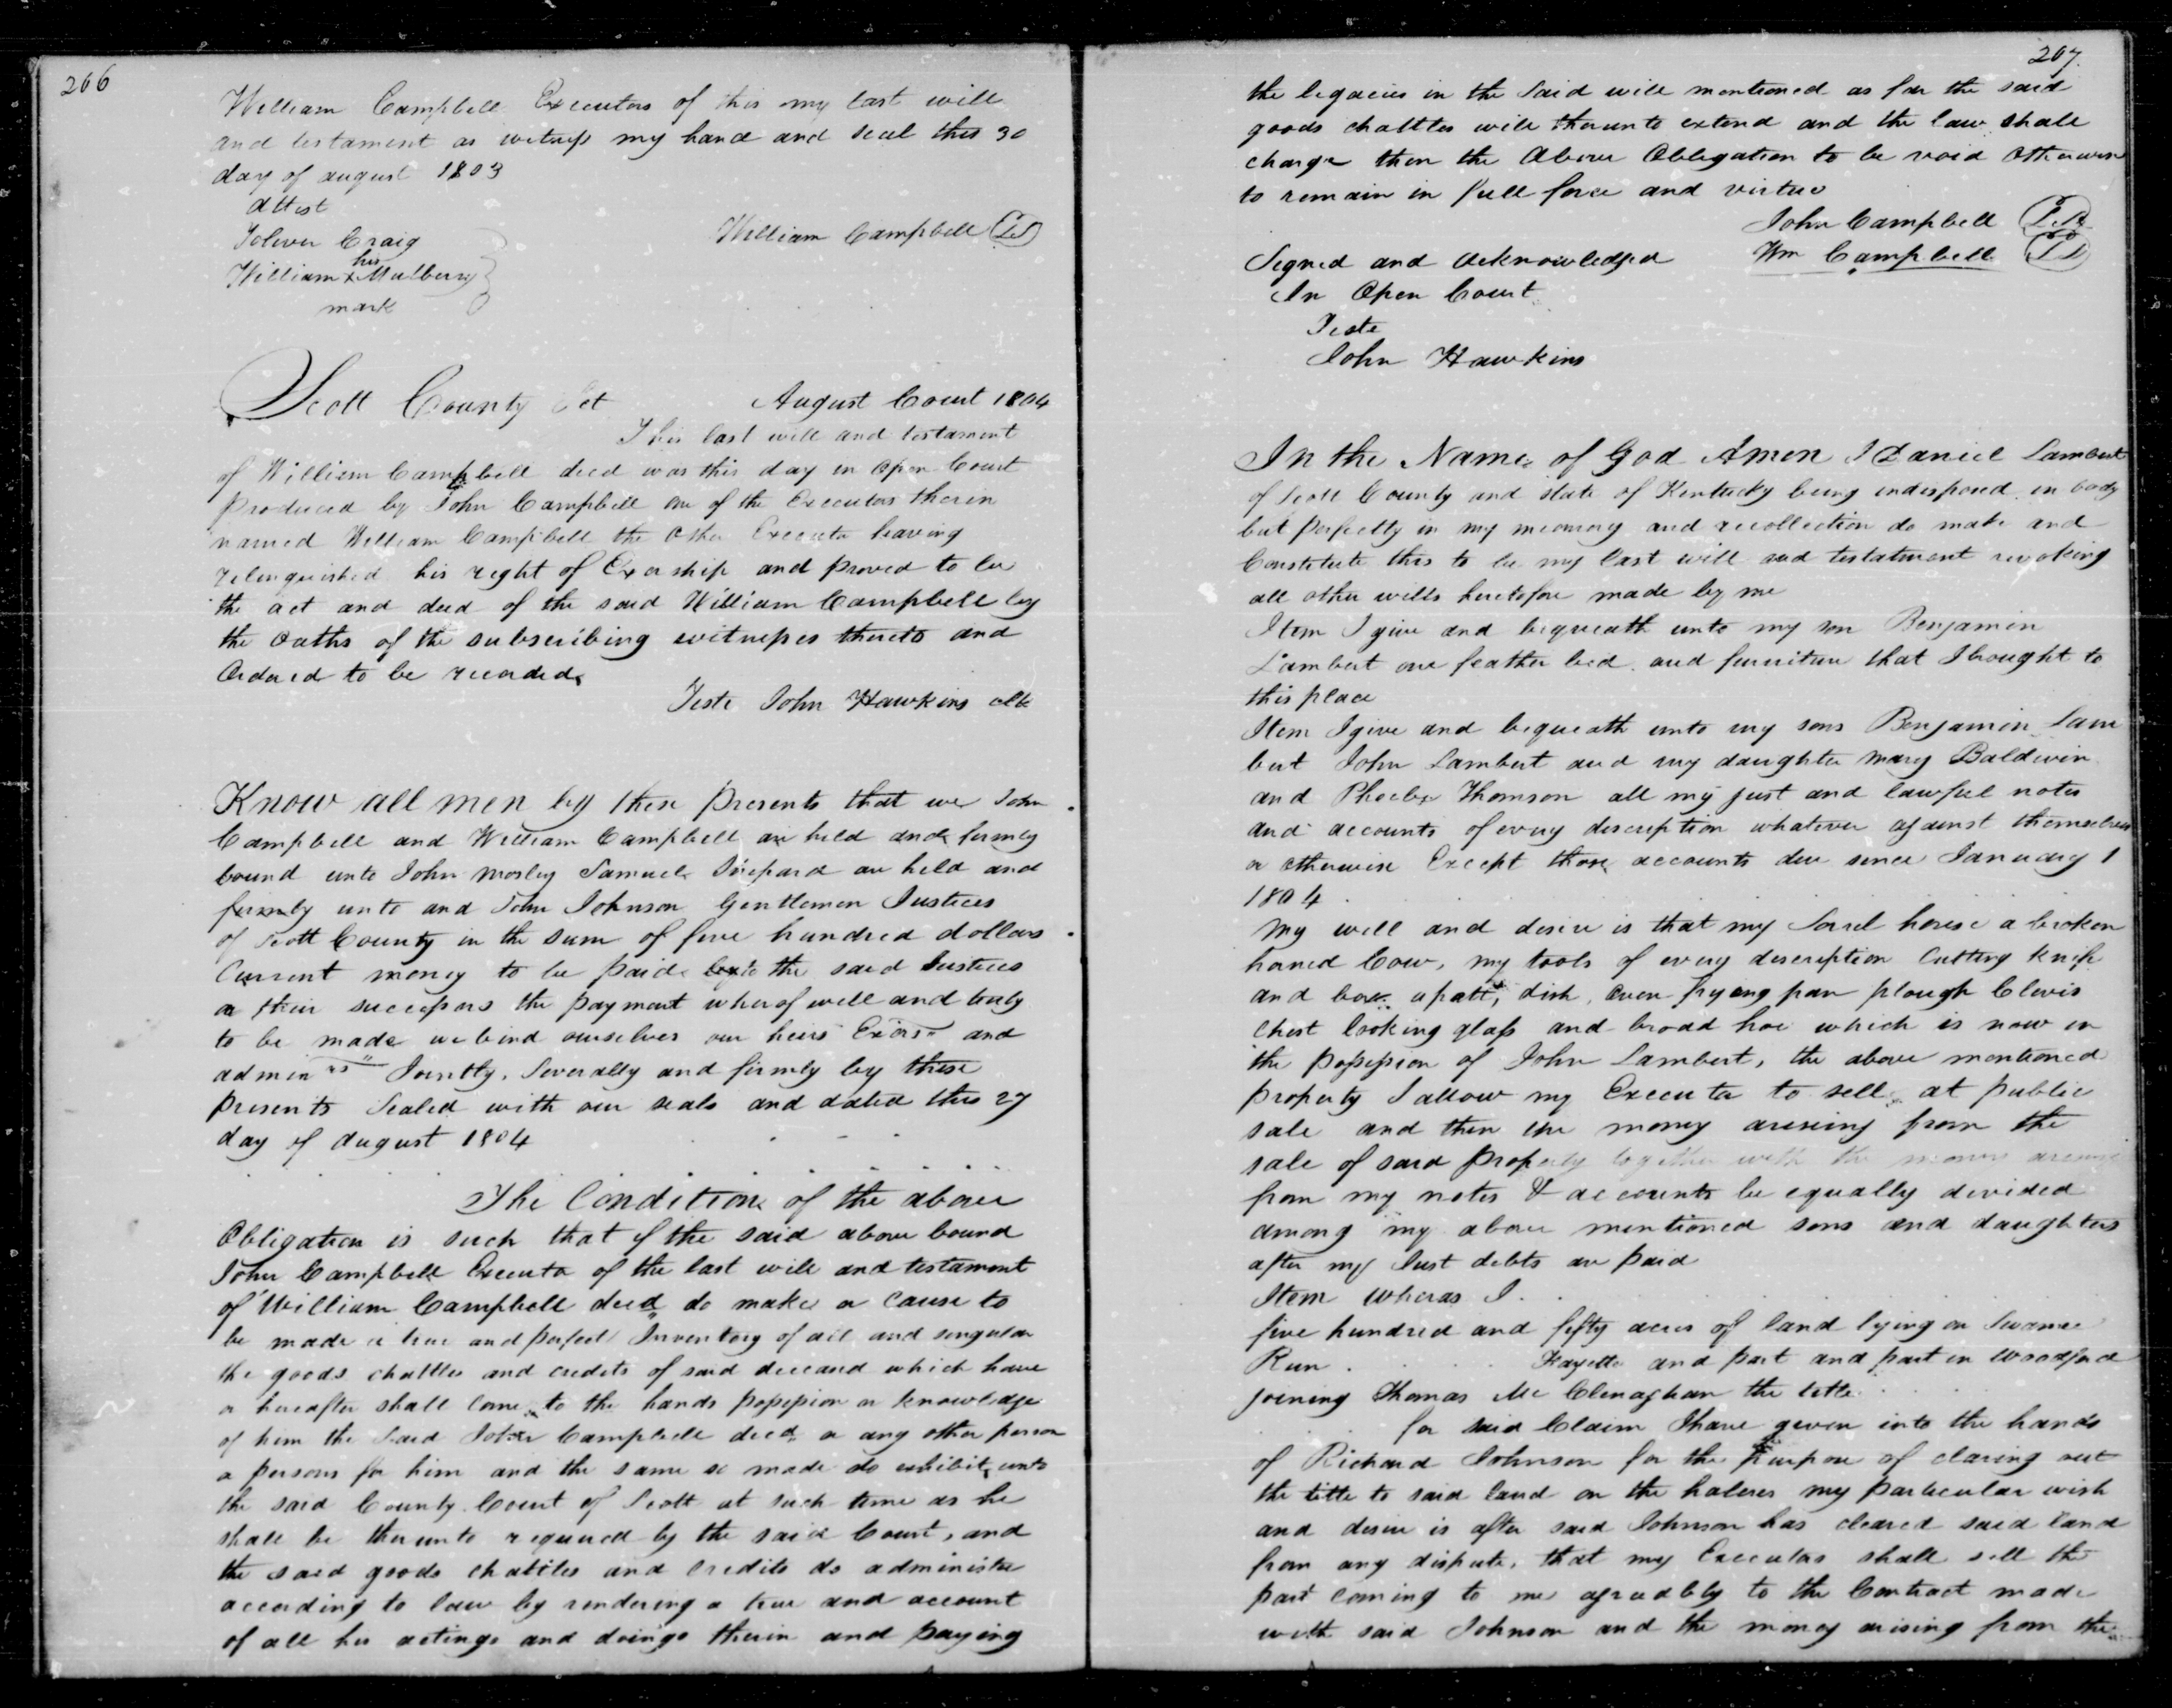 266
William Campbell Executors of this my last will
and testament as witness my hand and seal this 30
day of august 1803
Attest
Toliver Craig
William Campbell (LS)
his
William x Mulberry
mark
Scott County Sct August Court 1804
This last will and testament
of William Campbell decd was this day in Open Court
produced by John Campbell one of the Executors therin
named William Campbell the Other Executor having
relinquished his right of Exorship and proved to be
the act and deed of the said William Campbell by
the Oaths of the subscribing witnesses thereto and
Ordered to be recorded
Teste John Hawkins clk
Know all men by these presents that we John
Campbell and William Campbell are held and firmly
bound unto John Mosley Samuel Shepard are held and
firmly unto and John Johnson Gentlemen Justices
of Scott County in the sum of five hundred dollars
Current money to be paid to the said Justices
or their successors the payment wherof well and truly
to be made we bind ourselves our heirs Exors and
adminrs Jointly, Severally and firmly by these
presents Sealed with our seals and dated this 27
day of august 1804
The Condition of the above
Obligation is such that if the said above bound
John Campbell Executor of the last will and testament
of William Campbell decd do make or Cause to
be made a true and perfect Inventory of all and singular
the goods chattles and credits of said deceased which have
or hereafter shall come to the hands possession or knowledge
of him the Said John Campbell decd or any other person
or persons for him and the same so made do exhibit unto
the said County Court of Scott at such time as he
shall be therunto required by the said Court, and
the said goods chattles and Credits do administer
according to law by rendering a true and account
of all his actings and doings therin and paying
267
the legacies in the Said will mentioned as far the said
goods chattles will therunto extend and the law shall
charge then the Above Obligation to be void Otherwise
to remain in full force and virtue
John Campbell (L.S.)
Signed and Acknowledged Wm Campbell (LS)
In Open Court
Teste
John Hawkins
In the Name of God Amen I Daniel Lambert
of Scott County and state of Kentucky being indisposed in body
but perfectly in my memory and recollection do make and
Constitute this to be my last will and testatment revoking
all other wills heretofore made by me
Item I give and bequeath unto my son Benjamin
Lambert one feather bed and furniture that I brought to
this place
Item I give and bequeath unto my sons Benjamin Lam
bert John Lambert and my daughter Mary Baldwin
and Phoebe Thomson all my just and lawful notes
and accounts of every description whatever against themselves
or otherwise Except those accounts due since January 1
1804
My will and desire is that my Sorrel horse a broken
horned Cow, my tools of every description Cutting knife
and box dish, oven frying pan plough Clevis
chest looking glass and broad hoe which is now in
the possession of John Lambert, the above mentioned
property I allow my Executor to sell at public
sale and then the money arising from the
sale of said property together with the money arising
from my notes & accounts be equally divided
among my above mentioned sons and daughters
after my Just debts are paid
Item wheras I
five hundred and fifty acres of land lying on
Run Fayette and part and part in Woodford
joining Thomas Mc Clenaghan the title
for said Claim I have given into the hands
of Richard Johnson for the purpose of claring out
the title to said land on the halves my particular wish
and desire is after said Johnson has cleared said land
from any dispute, that my Executors shall sell the
part coming to me agreadbly to the Contract made
with said Johnson and the money arising from the